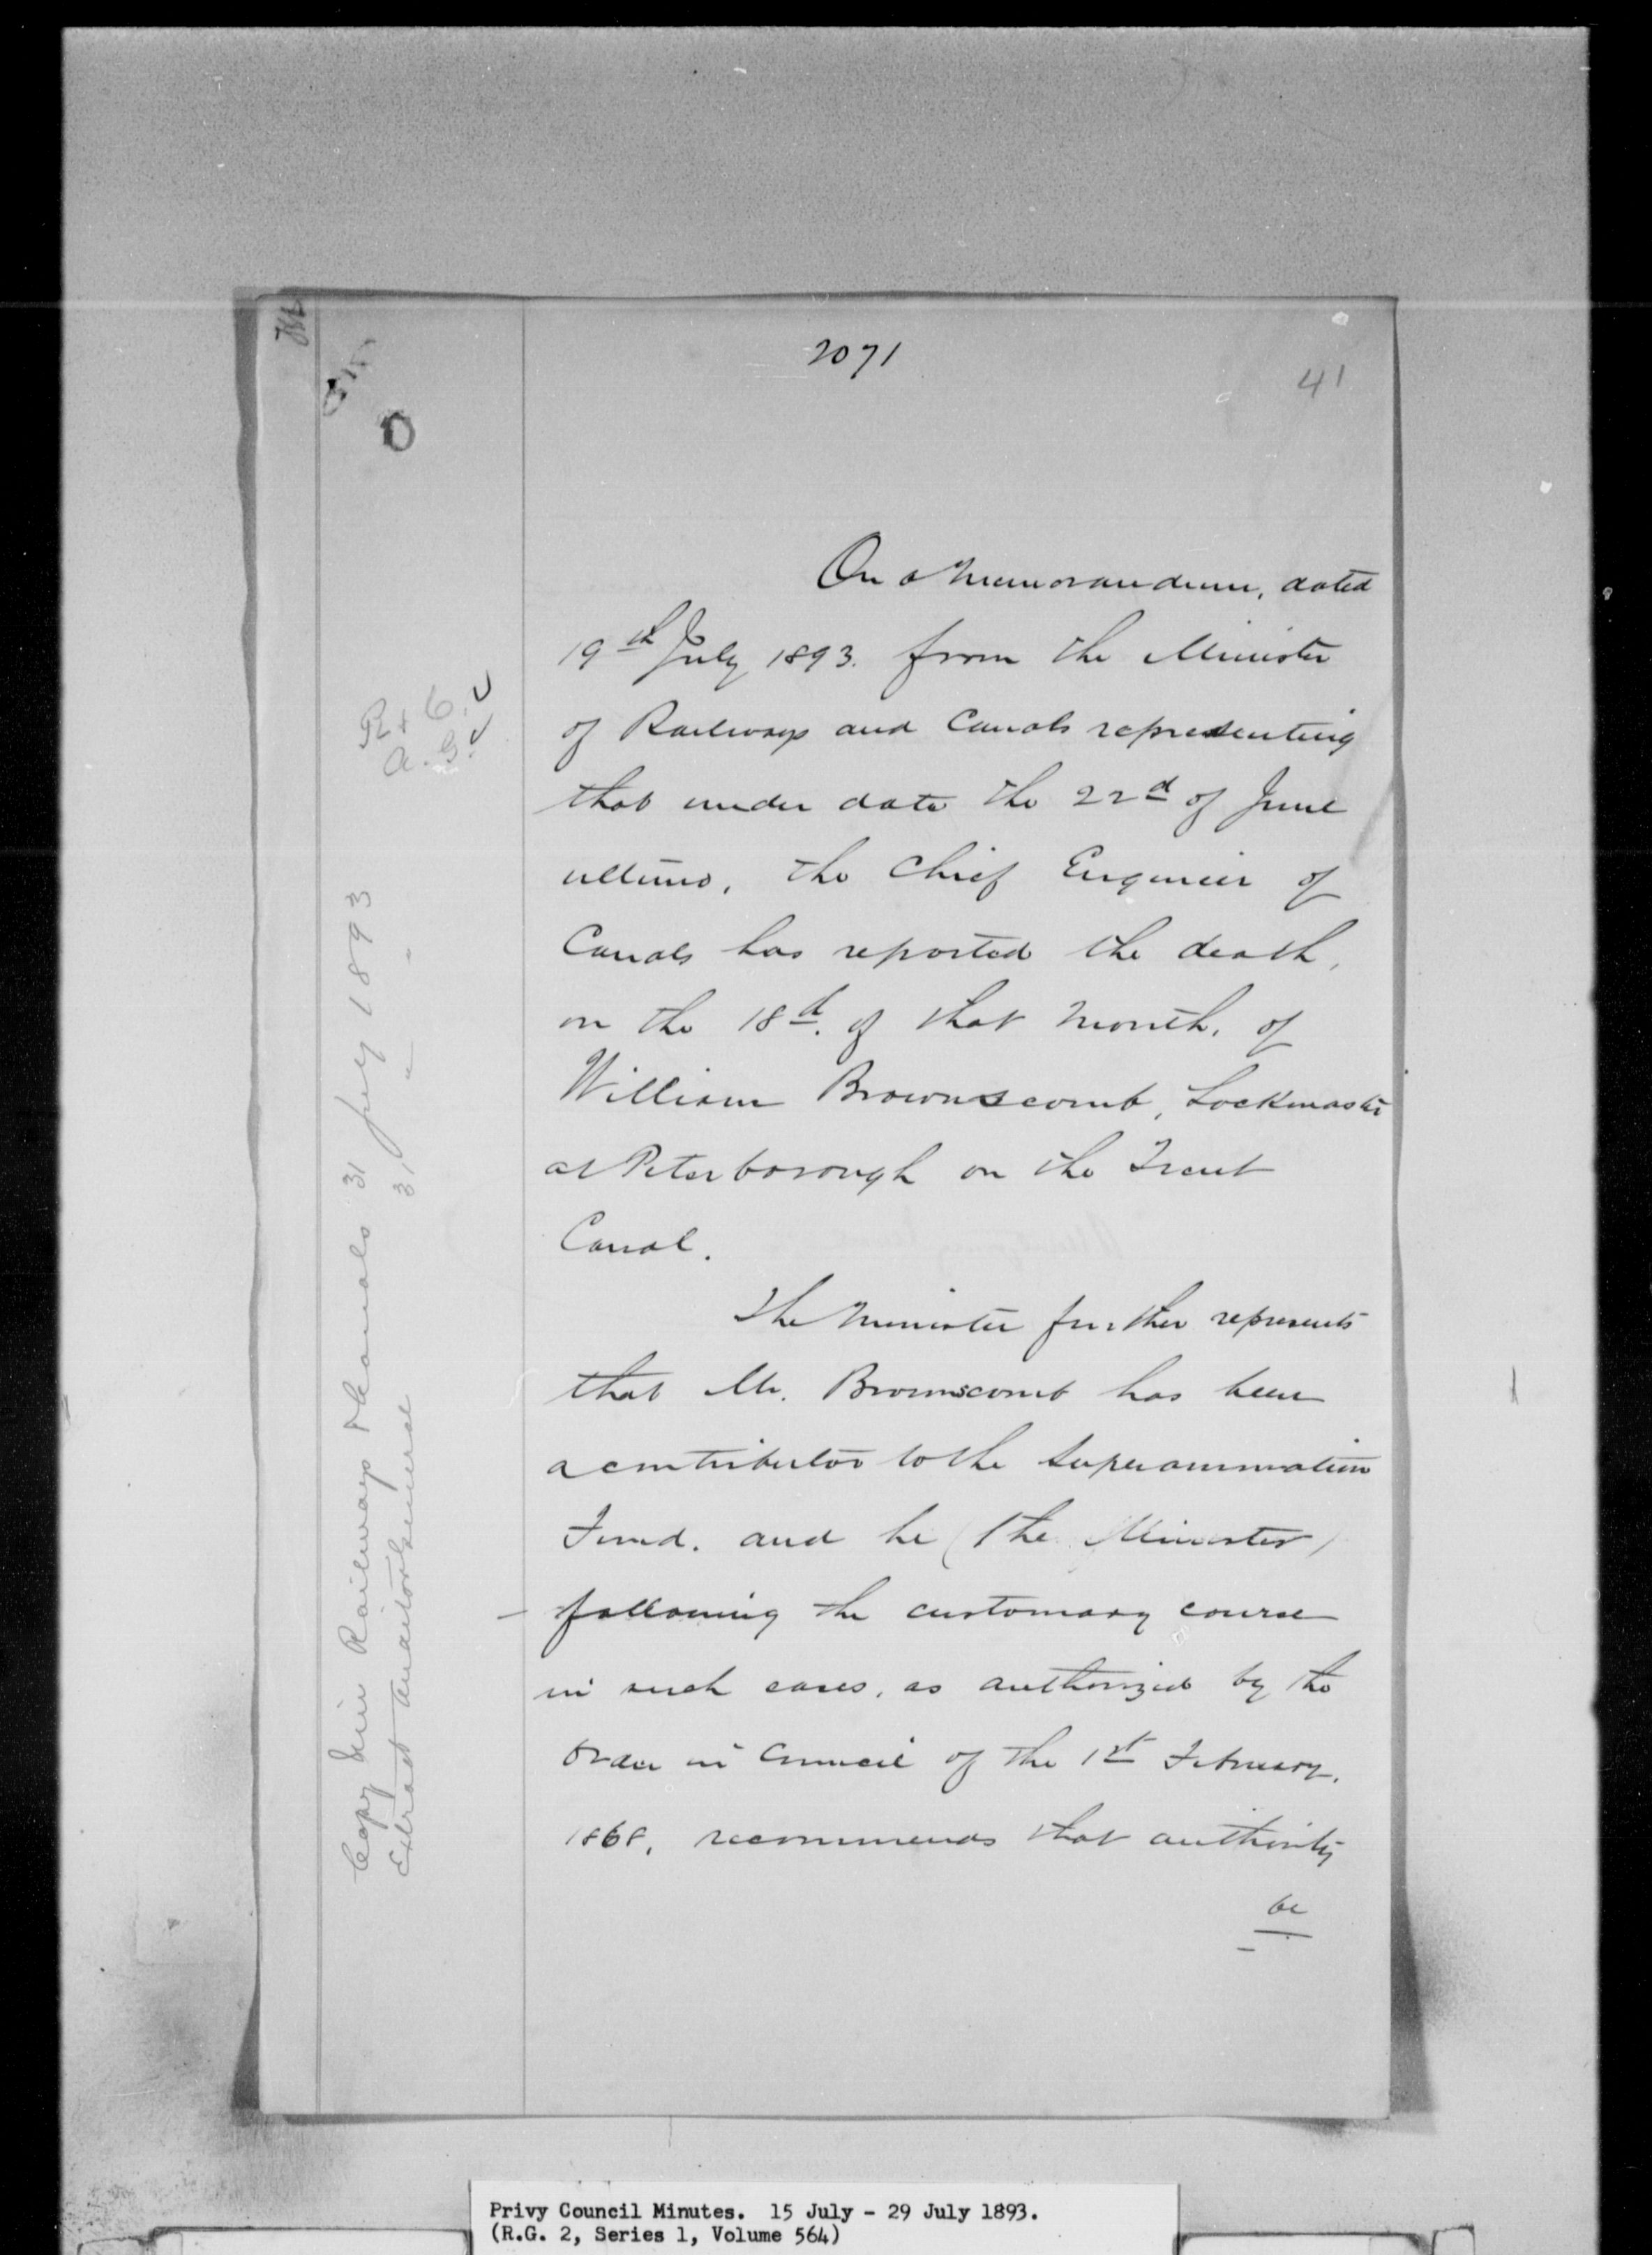 2071
41
On a Memorandum, dated
19th July 1893. from the Minister
of Railways and Canals representing
that under date the 22d of June
ultimo, the Chief Engineer of
Canals has reported the death,
on the 18th. of that month, of
William Brownscomb, Lockmaster
at Peterborough on the Trent
Canal.
The Minister further represents
that Mr. Brownscomb has been
a contributor to the Superannuation
Fund. and he (the Minister)
following the customary course
in such cases, as authorized by the
Order in Council of the 1st February,
1868, recommends that authority
be
R + C.
A. G.
Copy Min Railways & Canals 31 July 1893
Extract Auditor General 31 " "
Privy Council Minutes. 15 July - 29 July 1893.
(R.G. 2, Series 1, Volume 564)